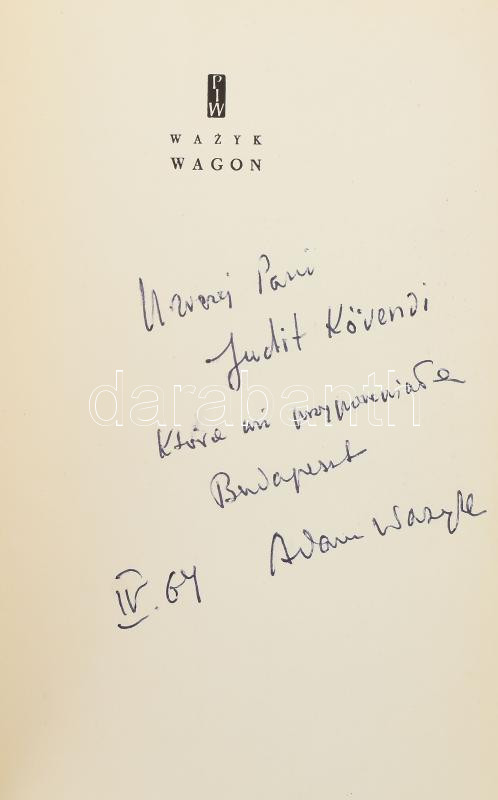 PIW
WAŻYK
WAGON
Uroczej Pani
Judit Kövendi
która mi przypomniała
Budapeszt
Adam Ważyk
IV. 64
darabanth